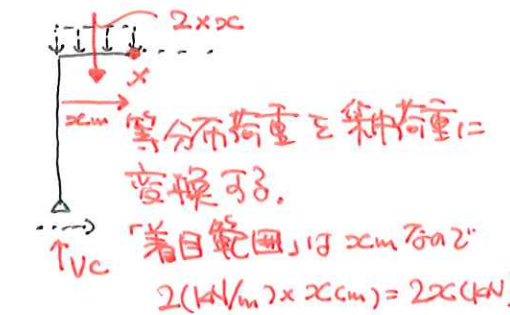 2×x
x
xm
等分布荷重を集中荷重に
変換する.
「着目範囲」は xm なので
VC
2(kN/m)×x(m)=2x(kN)